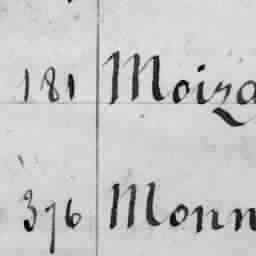 181 Moiza
376 Monn